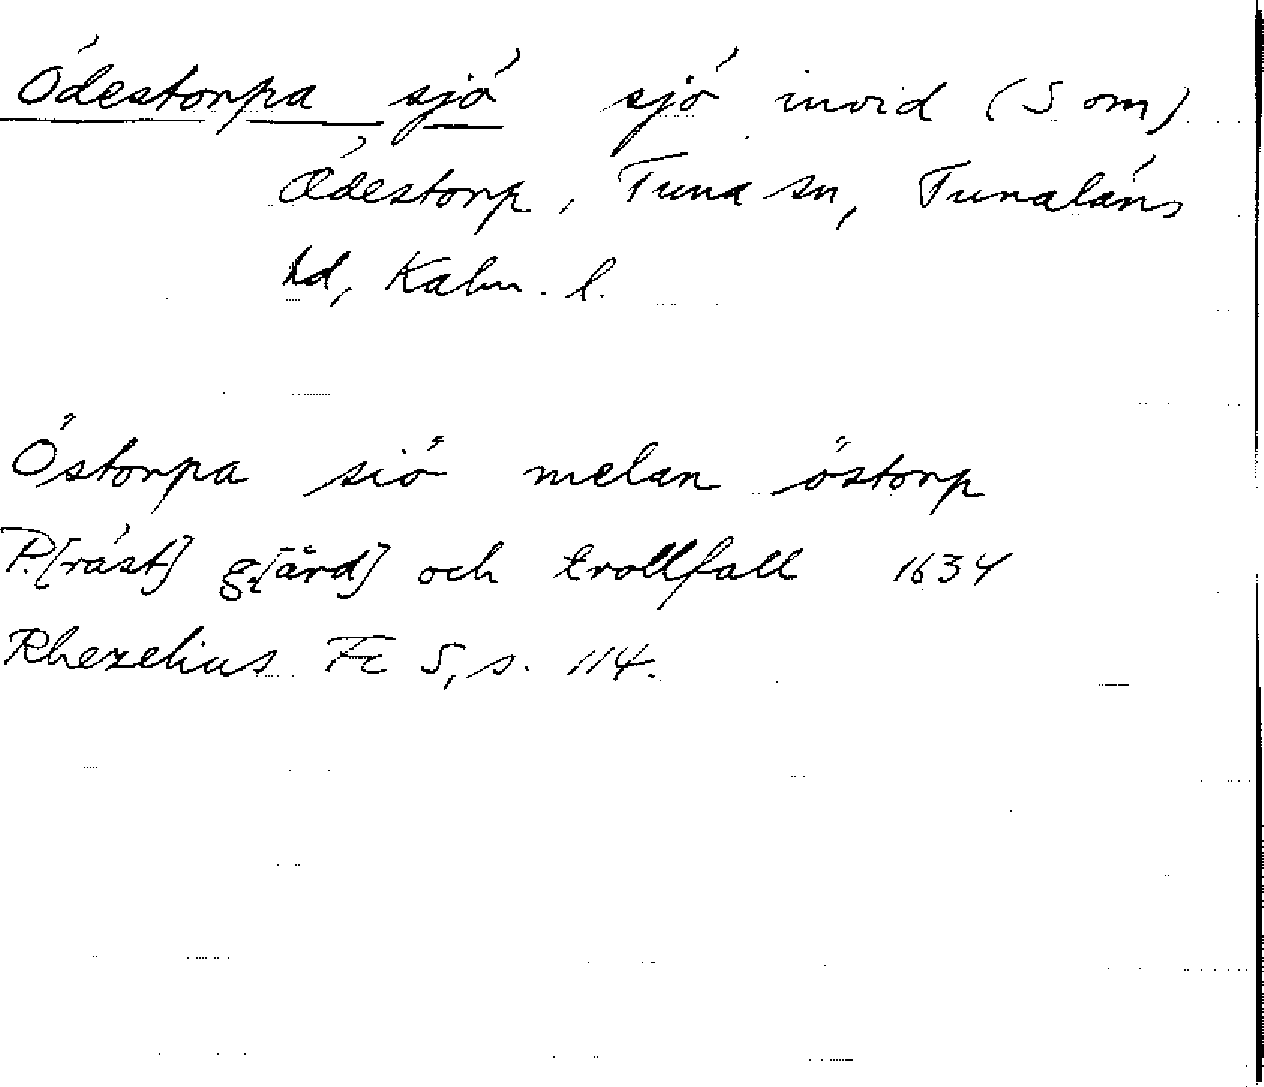 Ödestorpa sjö sjö invid (S om)
Ödestorp, Tuna sn, Tunaläns
hd, Kalm. l.
Östorpa siö melan östorp
P.[räst] g[ård] och trollfall 1634
Rhezelius Fc 5, s. 114.